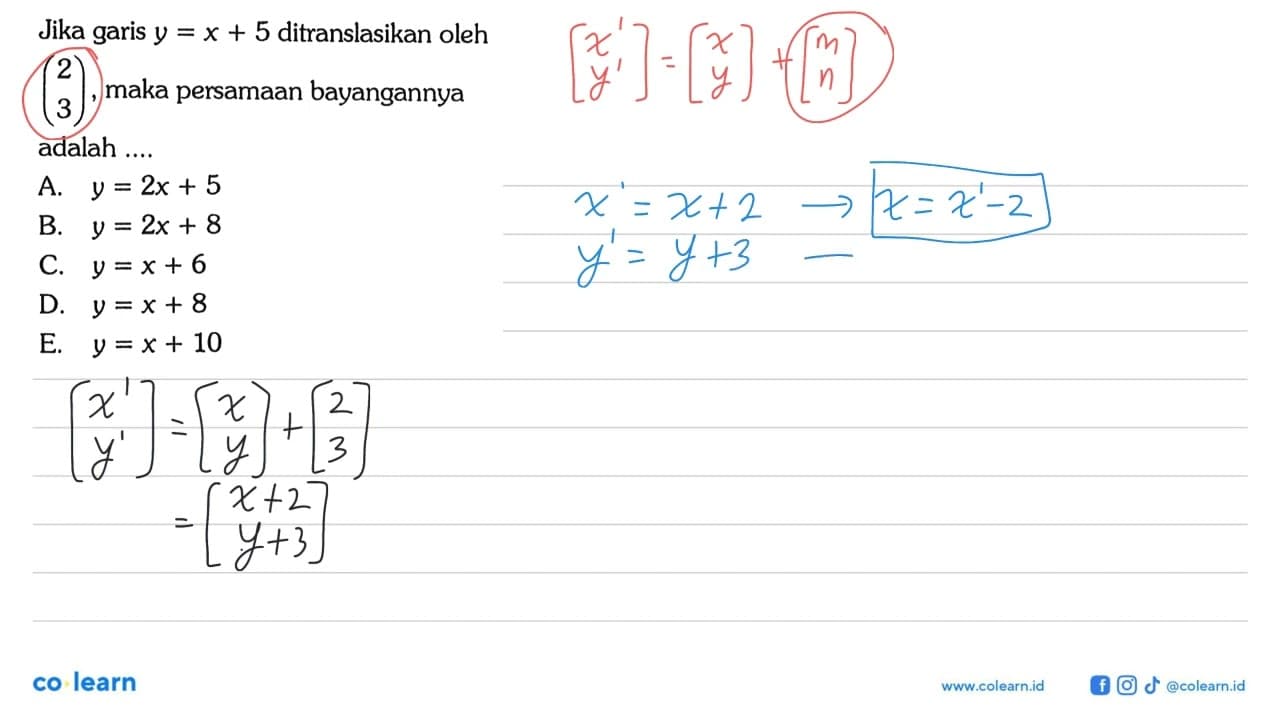 Jika garis y = x + 5 ditranslasikan oleh
(2
3), maka persamaan bayangannya
adalah ....
A. y = 2x + 5
B. y = 2x + 8
C. y = x + 6
D. y = x + 8
E. y = x + 10
[x'
y'] = [x
y] + [2
3]
= [x+2
y+3]
[x'
y'] = [x
y] + [m
n]
x' = x+2 → x = x'-2
y' = y+3 —
co learn
www.colearn.id
@colearn.id